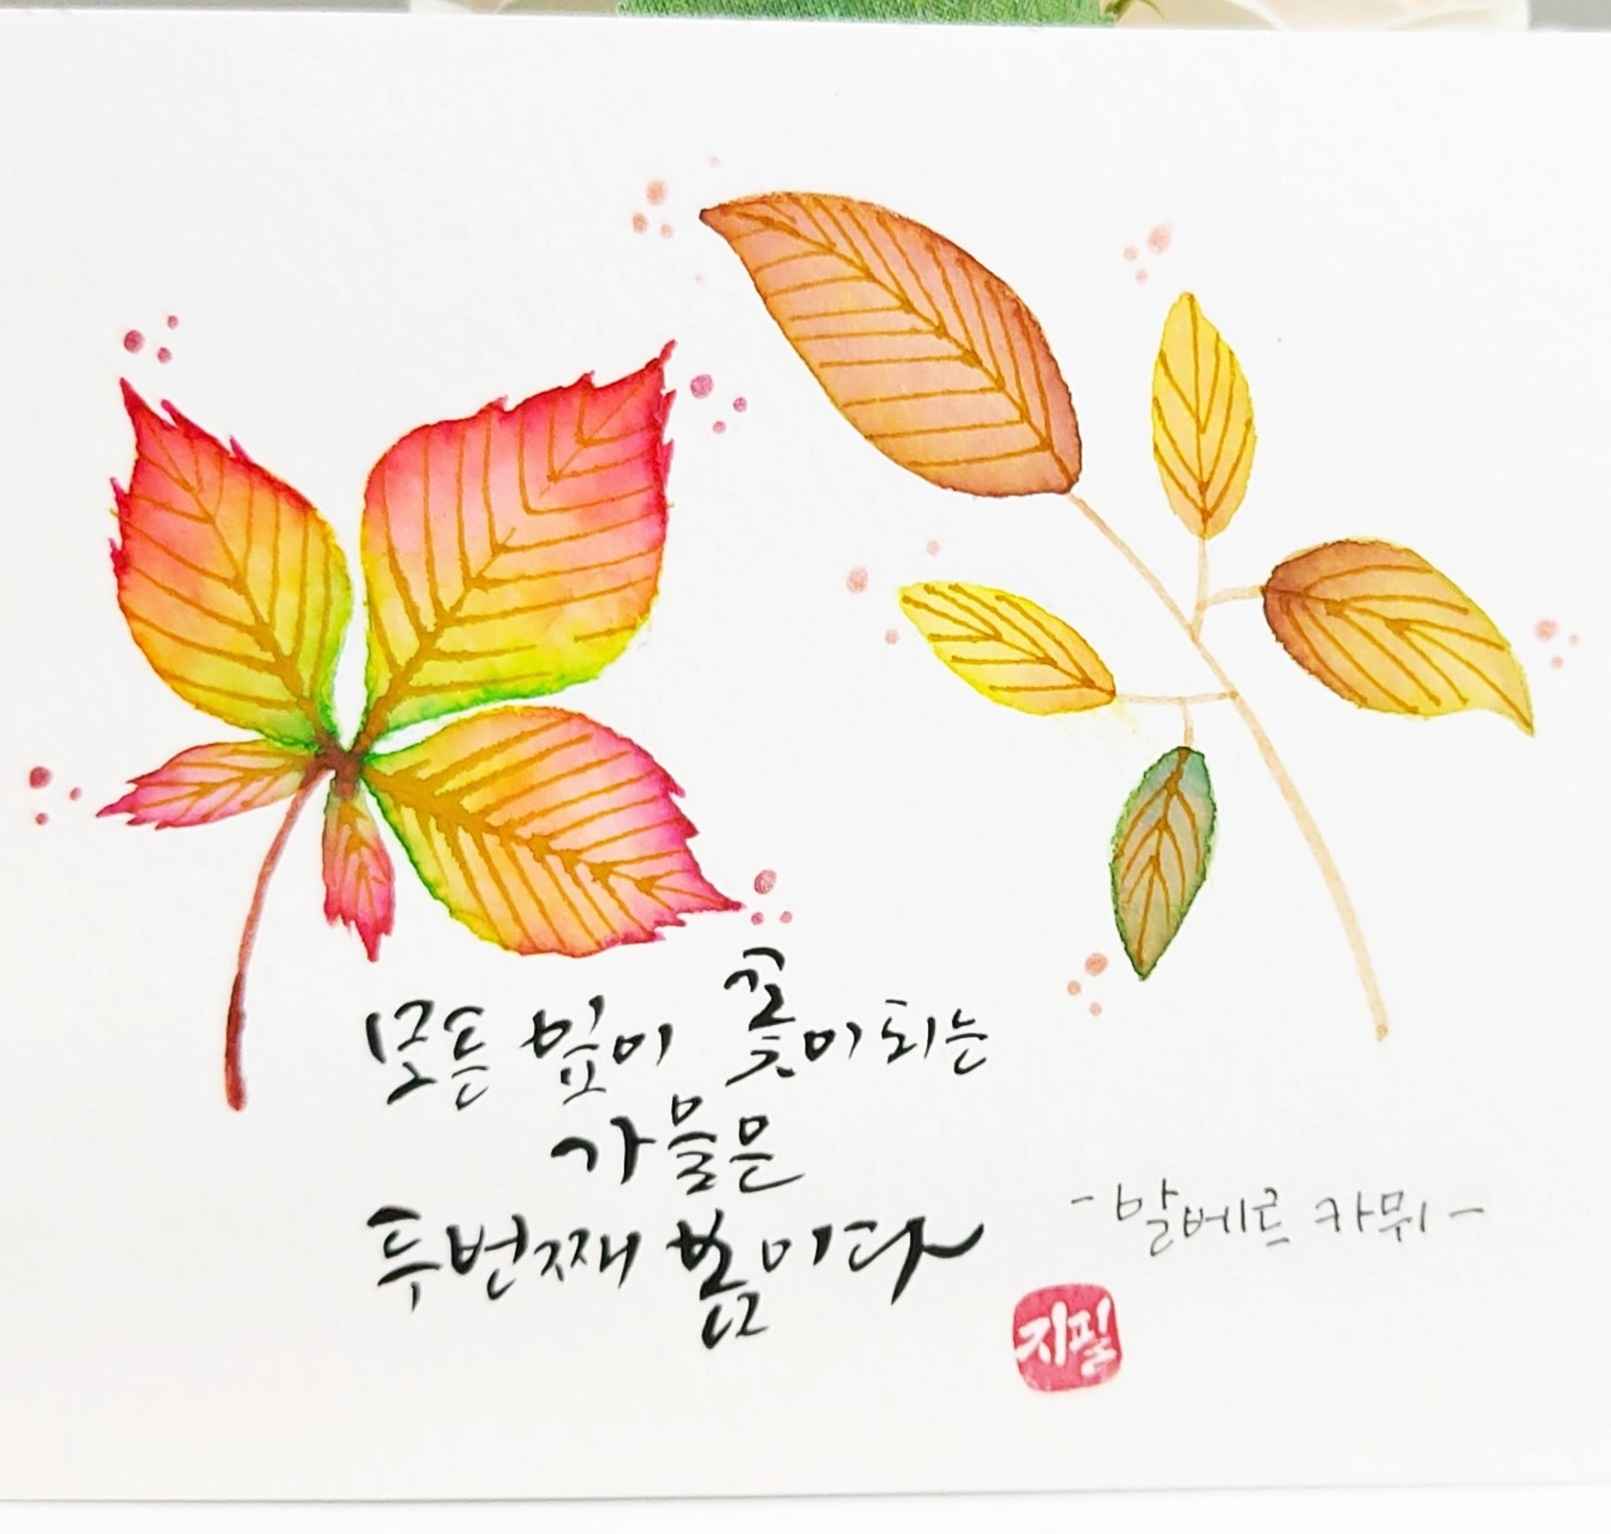 모든 잎이 꽃이 되는
가을은
두번째 봄이다
- 알베르 카뮈 -
지필